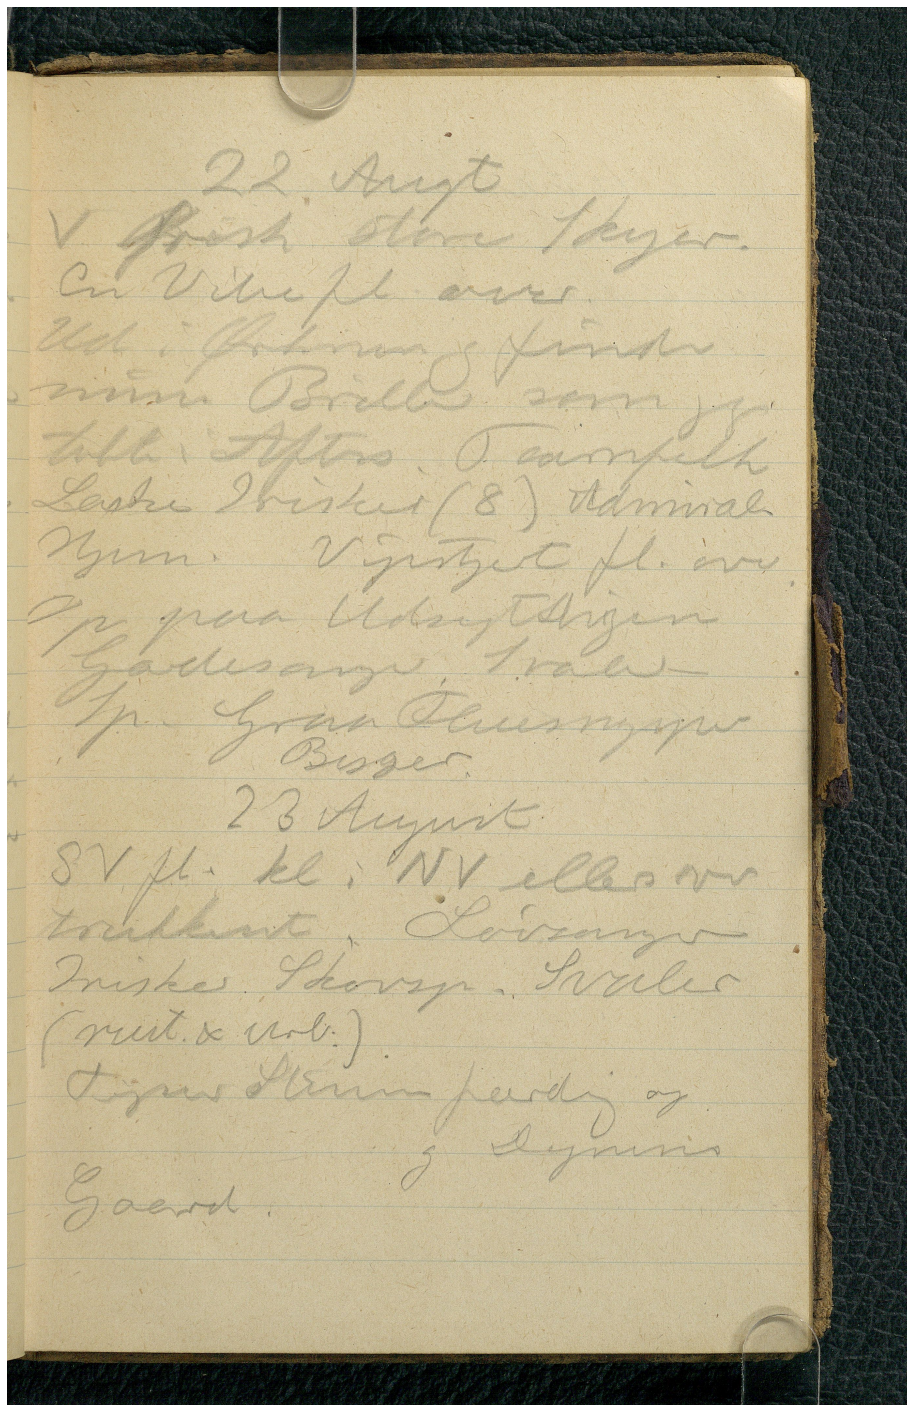 22 Augt
V frisk store Skyer.
En Vibe fl. over.
Ud i og finde
mine Briller som jeg
tabte i Aftes. Taarnfalk
Irisker (8) Admiral
Hjem. Vipstjert fl. over.
Sp paa Udsigt
Gaardsanger. Svaler
Sp. Graa Fluesnapper
Bisger.
23 August
SV fl. kl. i NV ellers over
trukkent. Løvsanger
Irisker. Skovsp. Svaler
(rust. & urb.)
Tegner færdig og
g
Gaard.